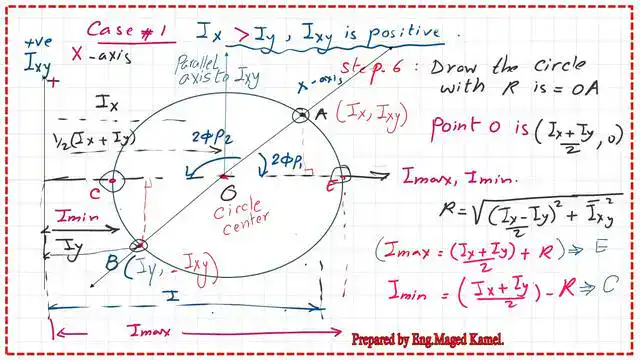 Case #1
Ix > Iy, Ixy is positive.
+ve
Ixy
X-axis
+
Parallel
axis to Ixy
x-axis
step.6 : Draw the circle
with R is = OA
Ix
A (Ix, Ixy)
1/2(Ix + Iy)
2φP2
2φP1
Point O is (Ix+Iy/2, 0)
C
O
E
Imax, Imin.
circle
center
Imin
R = √(Ix-Iy/2)² + Ixy²
Iy
B (Iy, -Ixy)
(Imax = (Ix+Iy/2) + R) ⇒ E
Imin = (Ix+Iy/2) - R ⇒ C
I
Imax
Prepared by Eng.Maged Kamel.